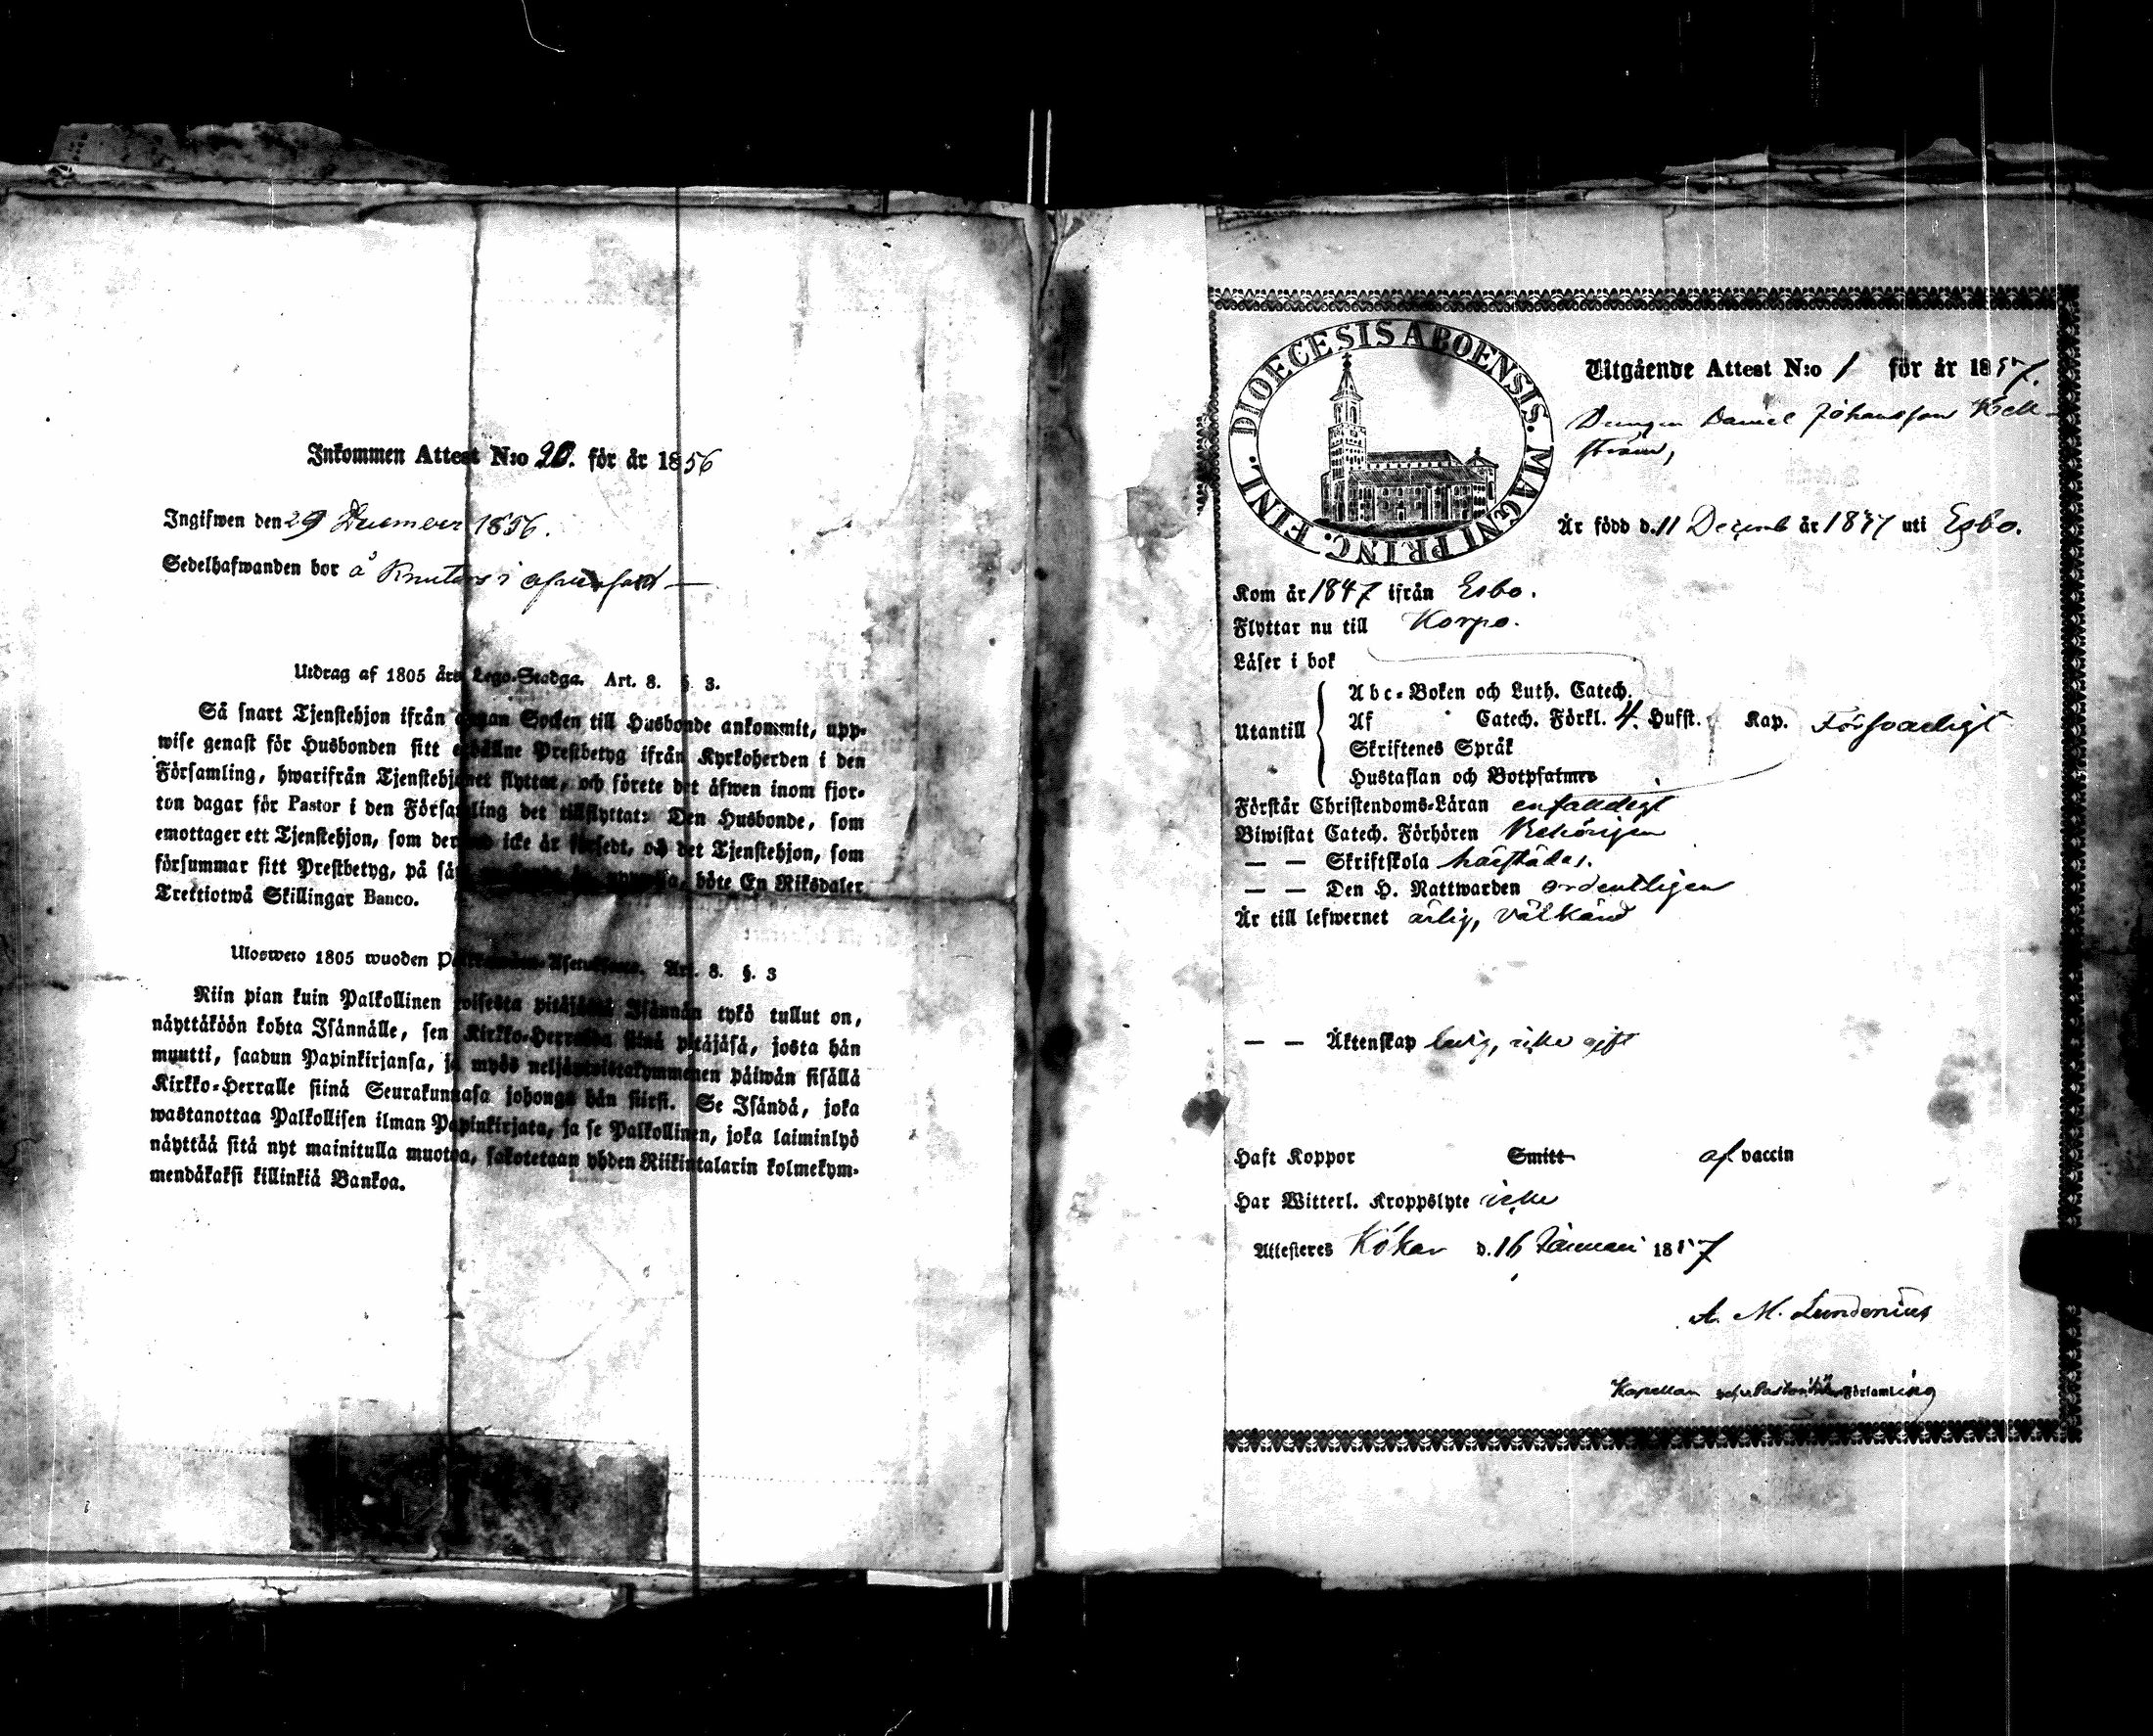 Inkommen Attest N:o 20. för år 1856
Ingifwen den 29 December 1856.
Sedelhafwanden bor å Knuters i
Utdrag af 1805 års Lego-Stadga. Art. 8. §. 3.
Så snart Tjenstehjon ifrån annan Socken till Husbonde ankommit, upp-
wise genast för Husbonden sitt erhållne Prestbetyg ifrån Kyrkoherden i den
Församling, hwarifrån Tjenstehjonet flyttat, och förete det äfwen inom fjor-
ton dagar för Pastor i den Församling det tillflyttat: Den Husbonde, som
emottager ett Tjenstehjon, som dermed icke är försedt, och det Tjenstehjon, som
försummar sitt Prestbetyg, på böte En Riksdaler
Trettiotwå Skillingar Banco.
Ulosweto 1805 wuoden Art. 8. §. 3
Niin pian kuin Palkollinen toisesta pitäjästä Isännän tykö tullut on,
näyttäköön kohta Isännälle, sen Kirkko-Herralda siinä pitäjäsä, josta hän
muutti, saadun Papinkirjansa, ja myös neljäntoistakymmenen päiwän sisällä
Kirkko-Herralle siinä Seurakunnasa johonga hän siirsi. Se Isändä, joka
wastanottaa Palkollisen ilman Papinkirjata, ja se Palkollinen, joka laiminlyö
näyttää sitä nyt mainitulla muotoa, sakotetaan yhden Riikintalarin kolmekym-
mendäkaksi killinkiä Bankoa.
DIOECESIS ABOENSIS. MAGNI PRINC. FINL.
Utgående Attest N:o 1 för år 1857.
Drengen Daniel Johansson
ström,
Är född d. 11 Decemb år 1837 uti Esbo.
Kom år 1847 ifrån Esbo.
Flyttar nu till Korpo.
Läser i bok
Utantill
Abc-Boken och Luth. Catech.
Af Catech. Förkl. 4. Hufst. Kap. Försvarligt
Skriftenes Språk
Hustaflan och Botpsalmer
Förstår Christendoms-Läran enfaldigt
Biwistat Catech. Förhören Behörigen
— — Skriftskola härstädes.
— — Den H. Nattwarden ordentligen
Är till lefwernet ärlig, välkänd
— — Äktenskap ledig, icke gift
Haft Koppor Smitt af vaccin
Har Witterl. Kroppslyte icke
Attesteres Kökar d. 16 Januari 1857
A. M. Lundenius
Kapellan Församling